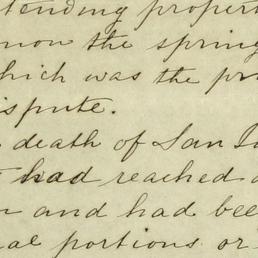 tending propert
the spring
hich was the pr
ispute.
death of San
had reached
and had bee
portions or